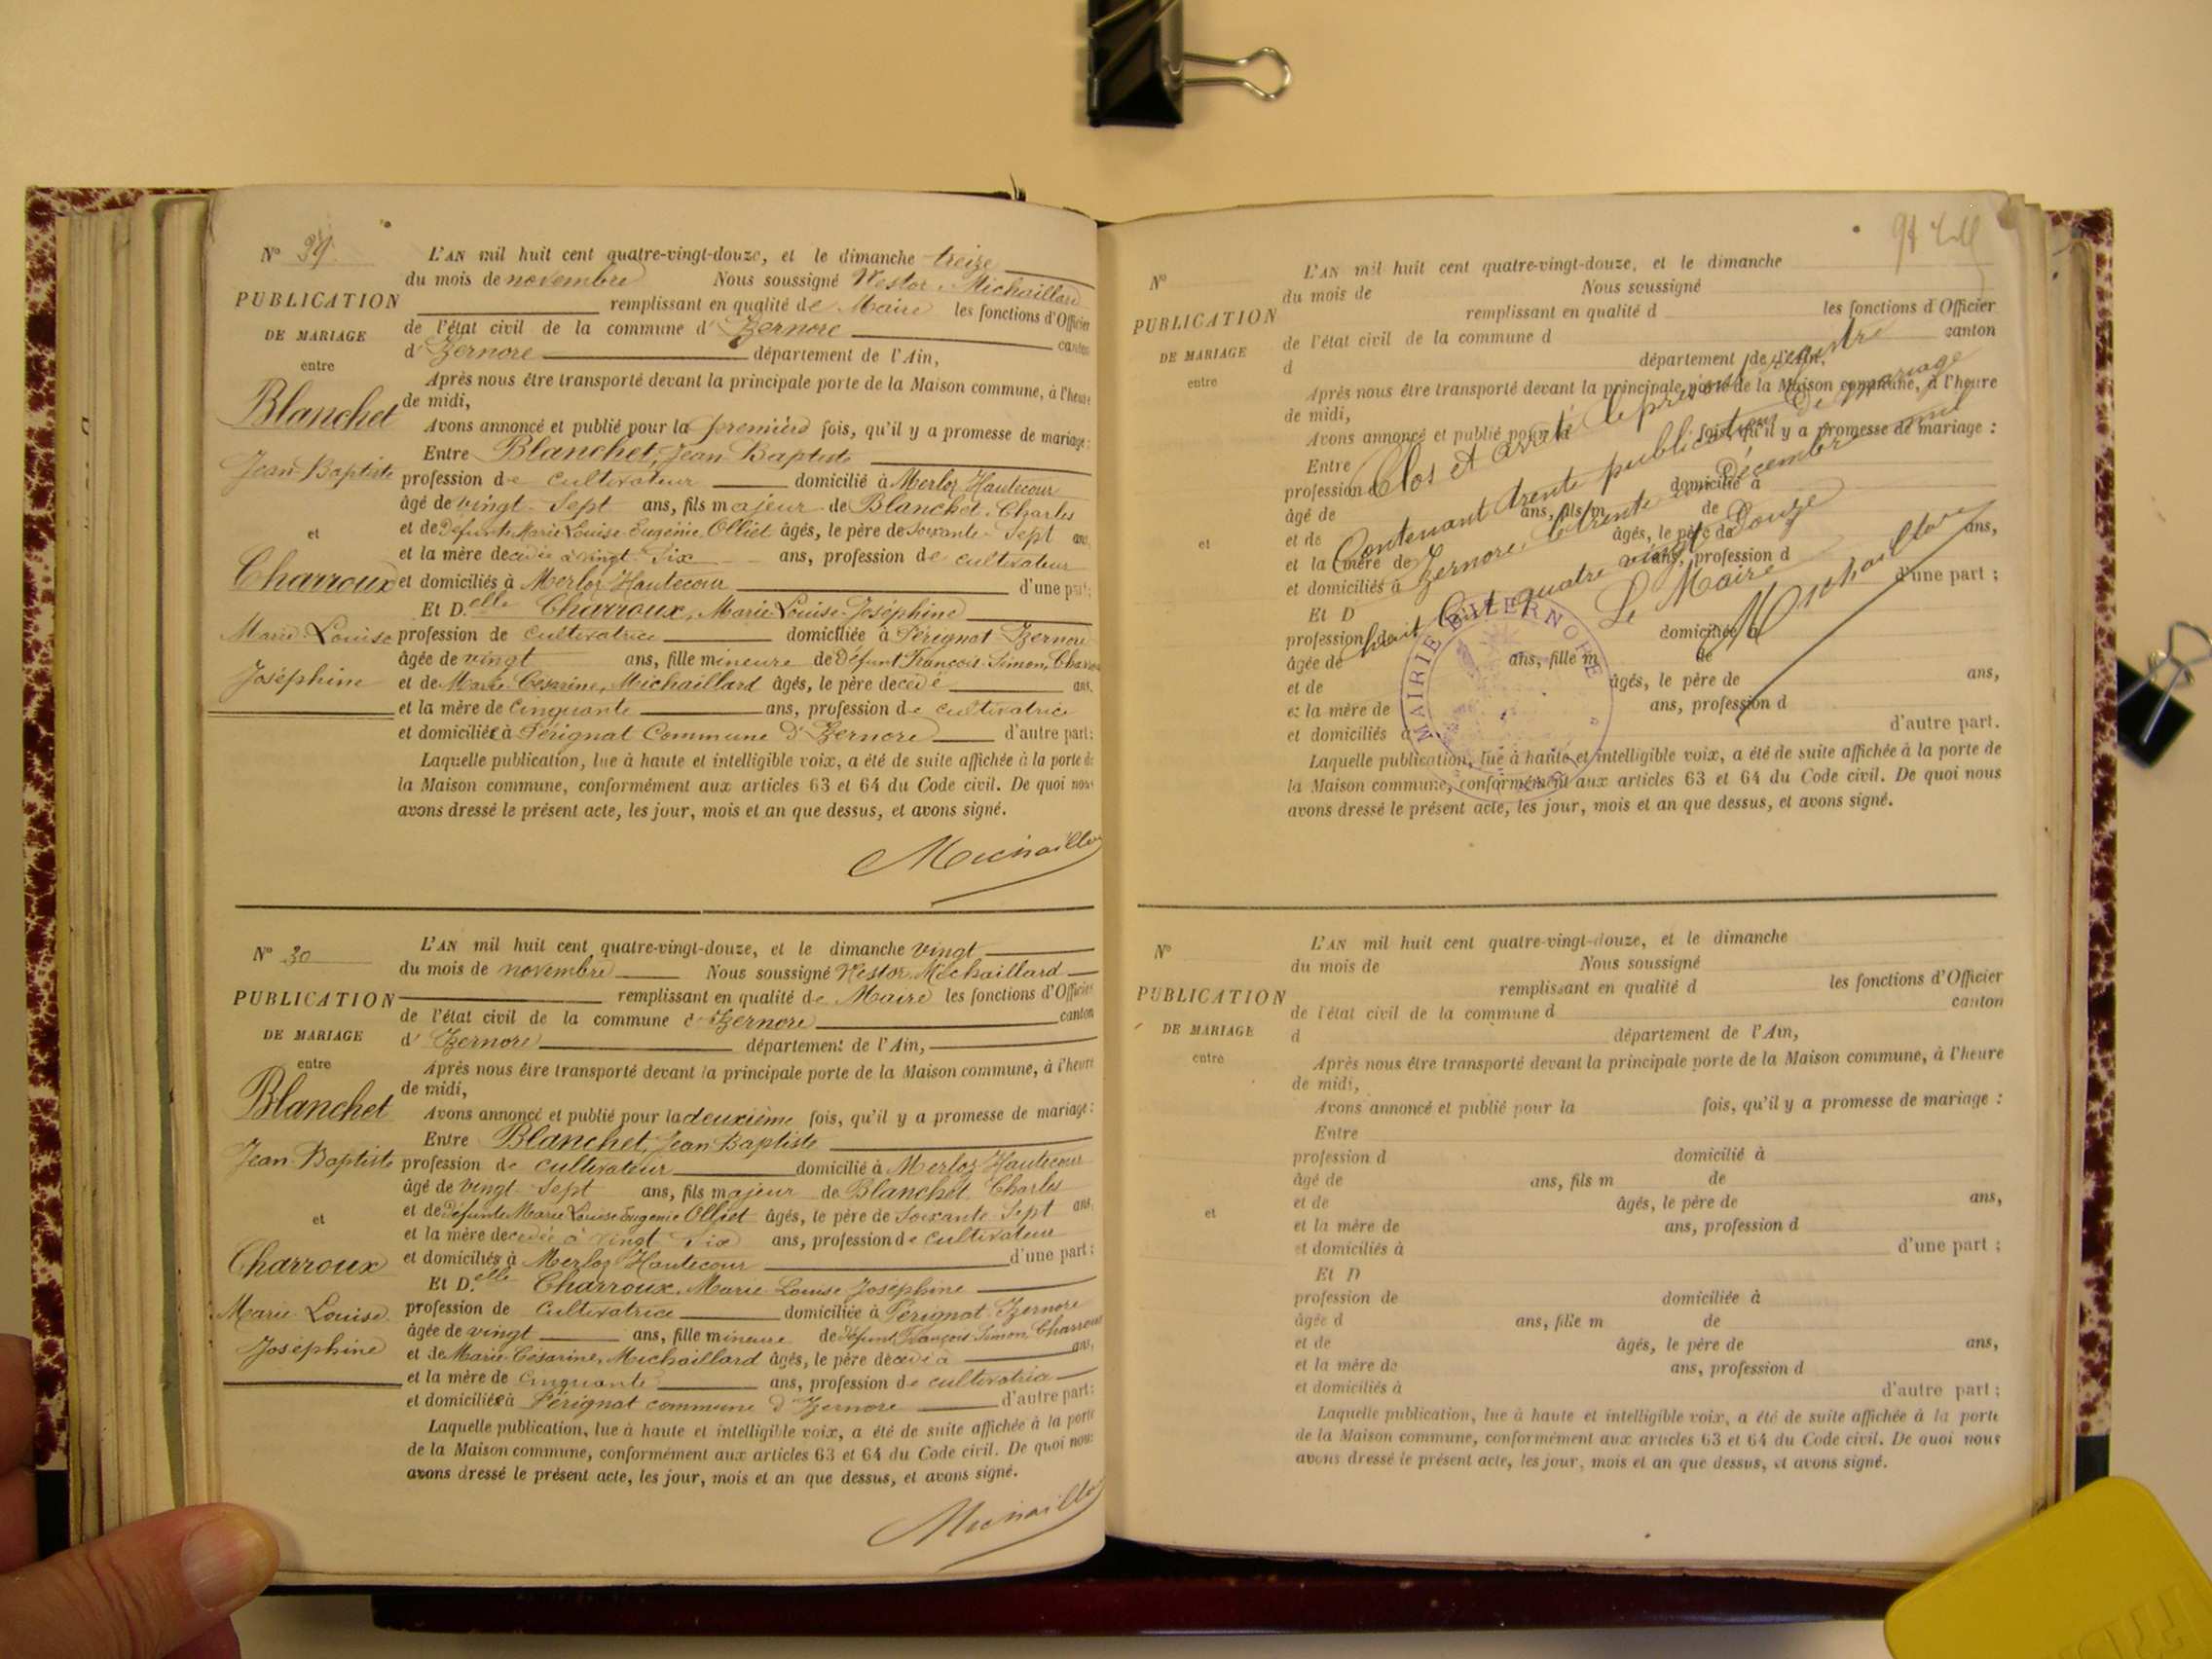 N° 29
PUBLICATION
DE MARIAGE
entre
Blanchet
Jean Baptiste
et
Charroux
Marie Louise
Joséphine
L'AN mil huit cent quatre-vingt-douze, et le dimanche treize
du mois de novembre Nous soussigné Nestor Michaillard
remplissant en qualité de Maire les fonctions d'Officier
de l'état civil de la commune d'Izernore canton
d'Izernore département de l'Ain,
Après nous être transporté devant la principale porte de la Maison commune, à l'heure
de midi,
Avons annoncé et publié pour la première fois, qu'il y a promesse de mariage:
Entre Blanchet, Jean Baptiste
profession de cultivateur domicilié à Merloz Hautecour
âgé de vingt-sept ans, fils majeur de Blanchet, Charles
et de Défunte Marie Louise Eugénie Olliet âgés, le père de Soixante-Sept ans,
et la mère decedée à vingt-Six ans, profession de cultivateur
et domiciliés à Merloz Hautecour d'une part;
Et D.elle Charroux, Marie Louise-Joséphine
profession de cultivatrice domiciliée à Pérignat Izernore
âgée de vingt ans, fille mineure de Défunt François-Simon, Charroux
et de Marie-Césarine, Michaillard âgés, le père decedé ans,
et la mère de Cinquante ans, profession de cultivatrice
et domiciliés à Pérignat Commune d'Izernore d'autre part;
Laquelle publication, lue à haute et intelligible voix, a été de suite affichée à la porte de
la Maison commune, conformément aux articles 63 et 64 du Code civil. De quoi nous
avons dressé le présent acte, les jour, mois et an que dessus, et avons signé.
Michaillard
N° 30
PUBLICATION
DE MARIAGE
entre
Blanchet
Jean-Baptiste
et
Charroux
Marie-Louise
Joséphine
L'AN mil huit cent quatre-vingt-douze, et le dimanche vingt
du mois de novembre Nous soussigné Nestor, Michaillard
remplissant en qualité de Maire les fonctions d'Officier
de l'état civil de la commune d'Izernore canton
d'Izernore département de l'Ain,
Après nous être transporté devant la principale porte de la Maison commune, à l'heure
de midi,
Avons annoncé et publié pour la deuxième fois, qu'il y a promesse de mariage:
Entre Blanchet, Jean Baptiste
profession de cultivateur domicilié à Merloz Hautecour
âgé de vingt-sept ans, fils majeur de Blanchet Charles
et de Défunte Marie Louise Eugénie Olliet âgés, le père de Soixante-Sept ans,
et la mère decedée à vingt-Six ans, profession de cultivateur
et domiciliés à Merloz Hautecour d'une part;
Et D.elle Charroux, Marie Louise Joséphine
profession de cultivatrice domiciliée à Pérignat Izernore
âgée de vingt ans, fille mineure de Défunt François Simon Charroux
et de Marie-Césarine, Michaillard âgés, le père décédé à ans,
et la mère de Cinquante ans, profession de cultivatrice
et domiciliés à Pérignat commune d'Izernore d'autre part;
Laquelle publication, lue à haute et intelligible voix, a été de suite affichée à la porte
de la Maison commune, conformément aux articles 63 et 64 du Code civil. De quoi nous
avons dressé le présent acte, les jour, mois et an que dessus, et avons signé.
Michaillard
N°
PUBLICATION
DE MARIAGE
entre
et
L'AN mil huit cent quatre-vingt-douze, et le dimanche
du mois de Nous soussigné
remplissant en qualité d les fonctions d'Officier
de l'état civil de la commune d canton
d département de l'Ain,
Après nous être transporté devant la principale porte de la Maison commune, à l'heure
de midi,
Avons annoncé et publié pour la fois, qu'il y a promesse de mariage :
Entre
profession d domicilié à
âgé de ans, fils m de
et de âgés, le père de ans,
et la mère de ans, profession d
et domiciliés à d'une part ;
Et D
profession de domiciliée à
âgée de ans, fille m de
et de âgés, le père de ans,
et la mère de ans, profession d
et domiciliés à d'autre part.
Laquelle publication, lue à haute et intelligible voix, a été de suite affichée à la porte de
la Maison commune, conformément aux articles 63 et 64 du Code civil. De quoi nous
avons dressé le présent acte, les jour, mois et an que dessus, et avons signé.
Clos et arrêté le présent registre
Contenant trente publications de mariage
Izernore, le trente un Décembre mil
huit cent quatre vingt Douze
Le Maire
Michaillard
MAIRIE D'IZERNORE
N°
PUBLICATION
DE MARIAGE
entre
et
L'AN mil huit cent quatre-vingt-douze, et le dimanche
du mois de Nous soussigné
remplissant en qualité d les fonctions d'Officier
de l'état civil de la commune d canton
d département de l'Ain,
Après nous être transporté devant la principale porte de la Maison commune, à l'heure
de midi,
Avons annoncé et publié pour la fois, qu'il y a promesse de mariage :
Entre
profession d domicilié à
âgé de ans, fils m de
et de âgés, le père de ans,
et la mère de ans, profession d
et domiciliés à d'une part ;
Et D
profession de domiciliée à
âgée d ans, fille m de
et de âgés, le père de ans,
et la mère de ans, profession d
et domiciliés à d'autre part ;
Laquelle publication, lue à haute et intelligible voix, a été de suite affichée à la porte
de la Maison commune, conformément aux articles 63 et 64 du Code civil. De quoi nous
avons dressé le présent acte, les jour, mois et an que dessus, et avons signé.